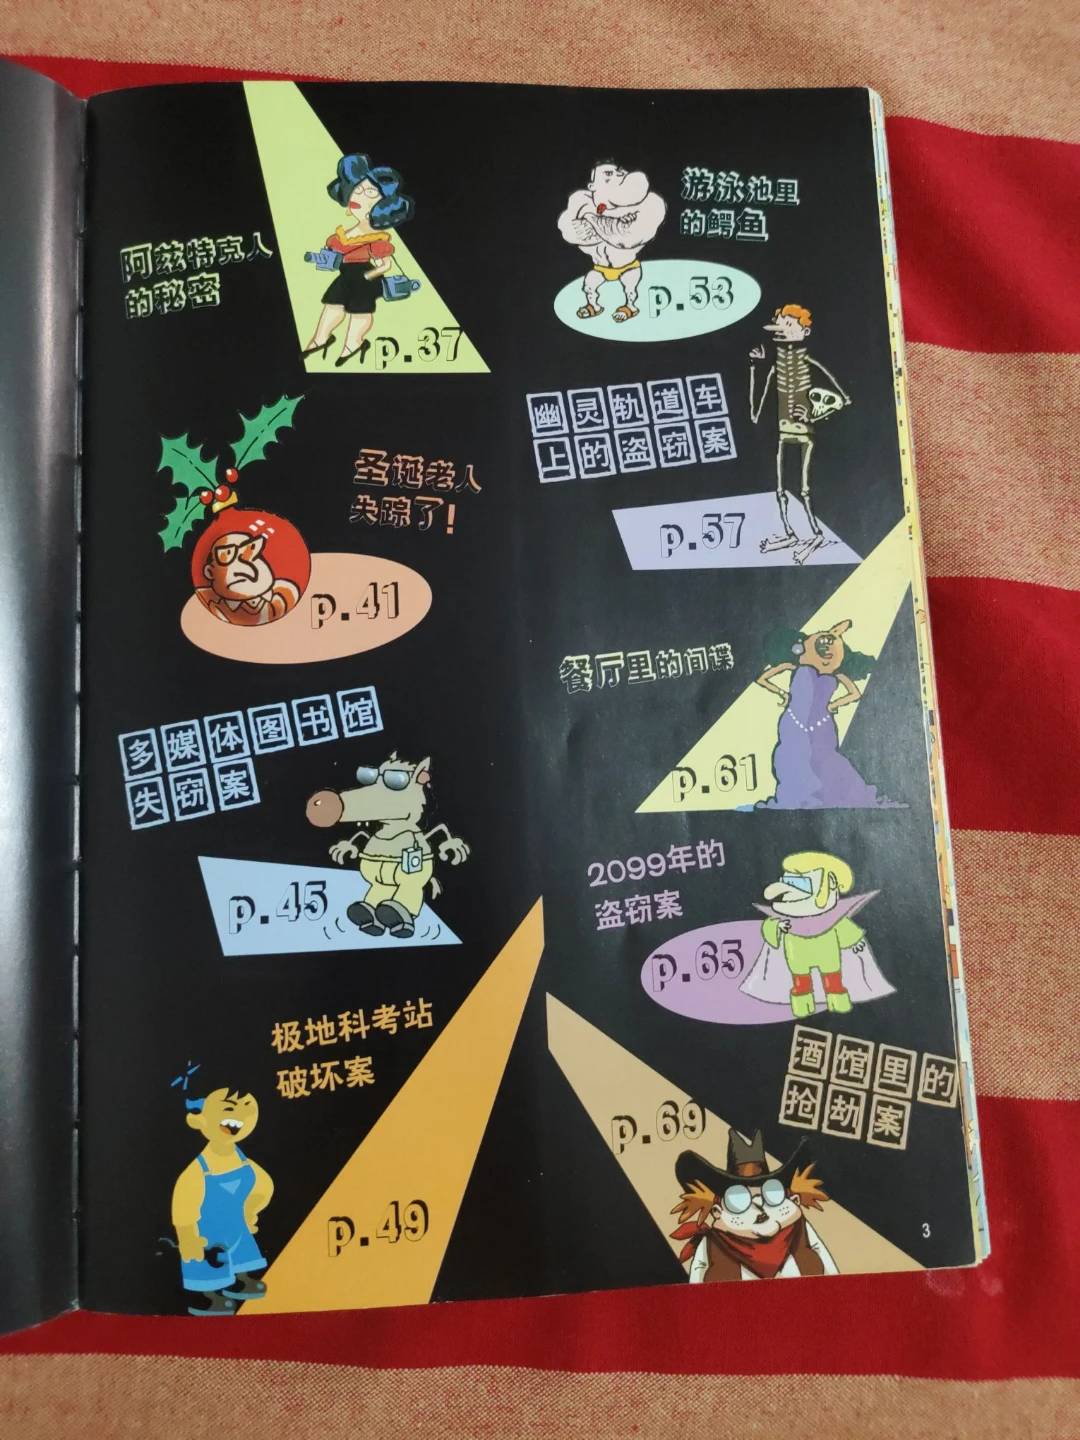 阿兹特克人
的秘密
p.37
圣诞老人
失踪了!
p.41
多媒体图书馆
失窃案
p.45
极地科考站
破坏案
p.49
游泳池里
的鳄鱼
p.53
幽灵轨道车
上的盗窃案
p.57
餐厅里的间谍
p.61
2099年的
盗窃案
p.65
酒馆里的
抢劫案
p.69
3